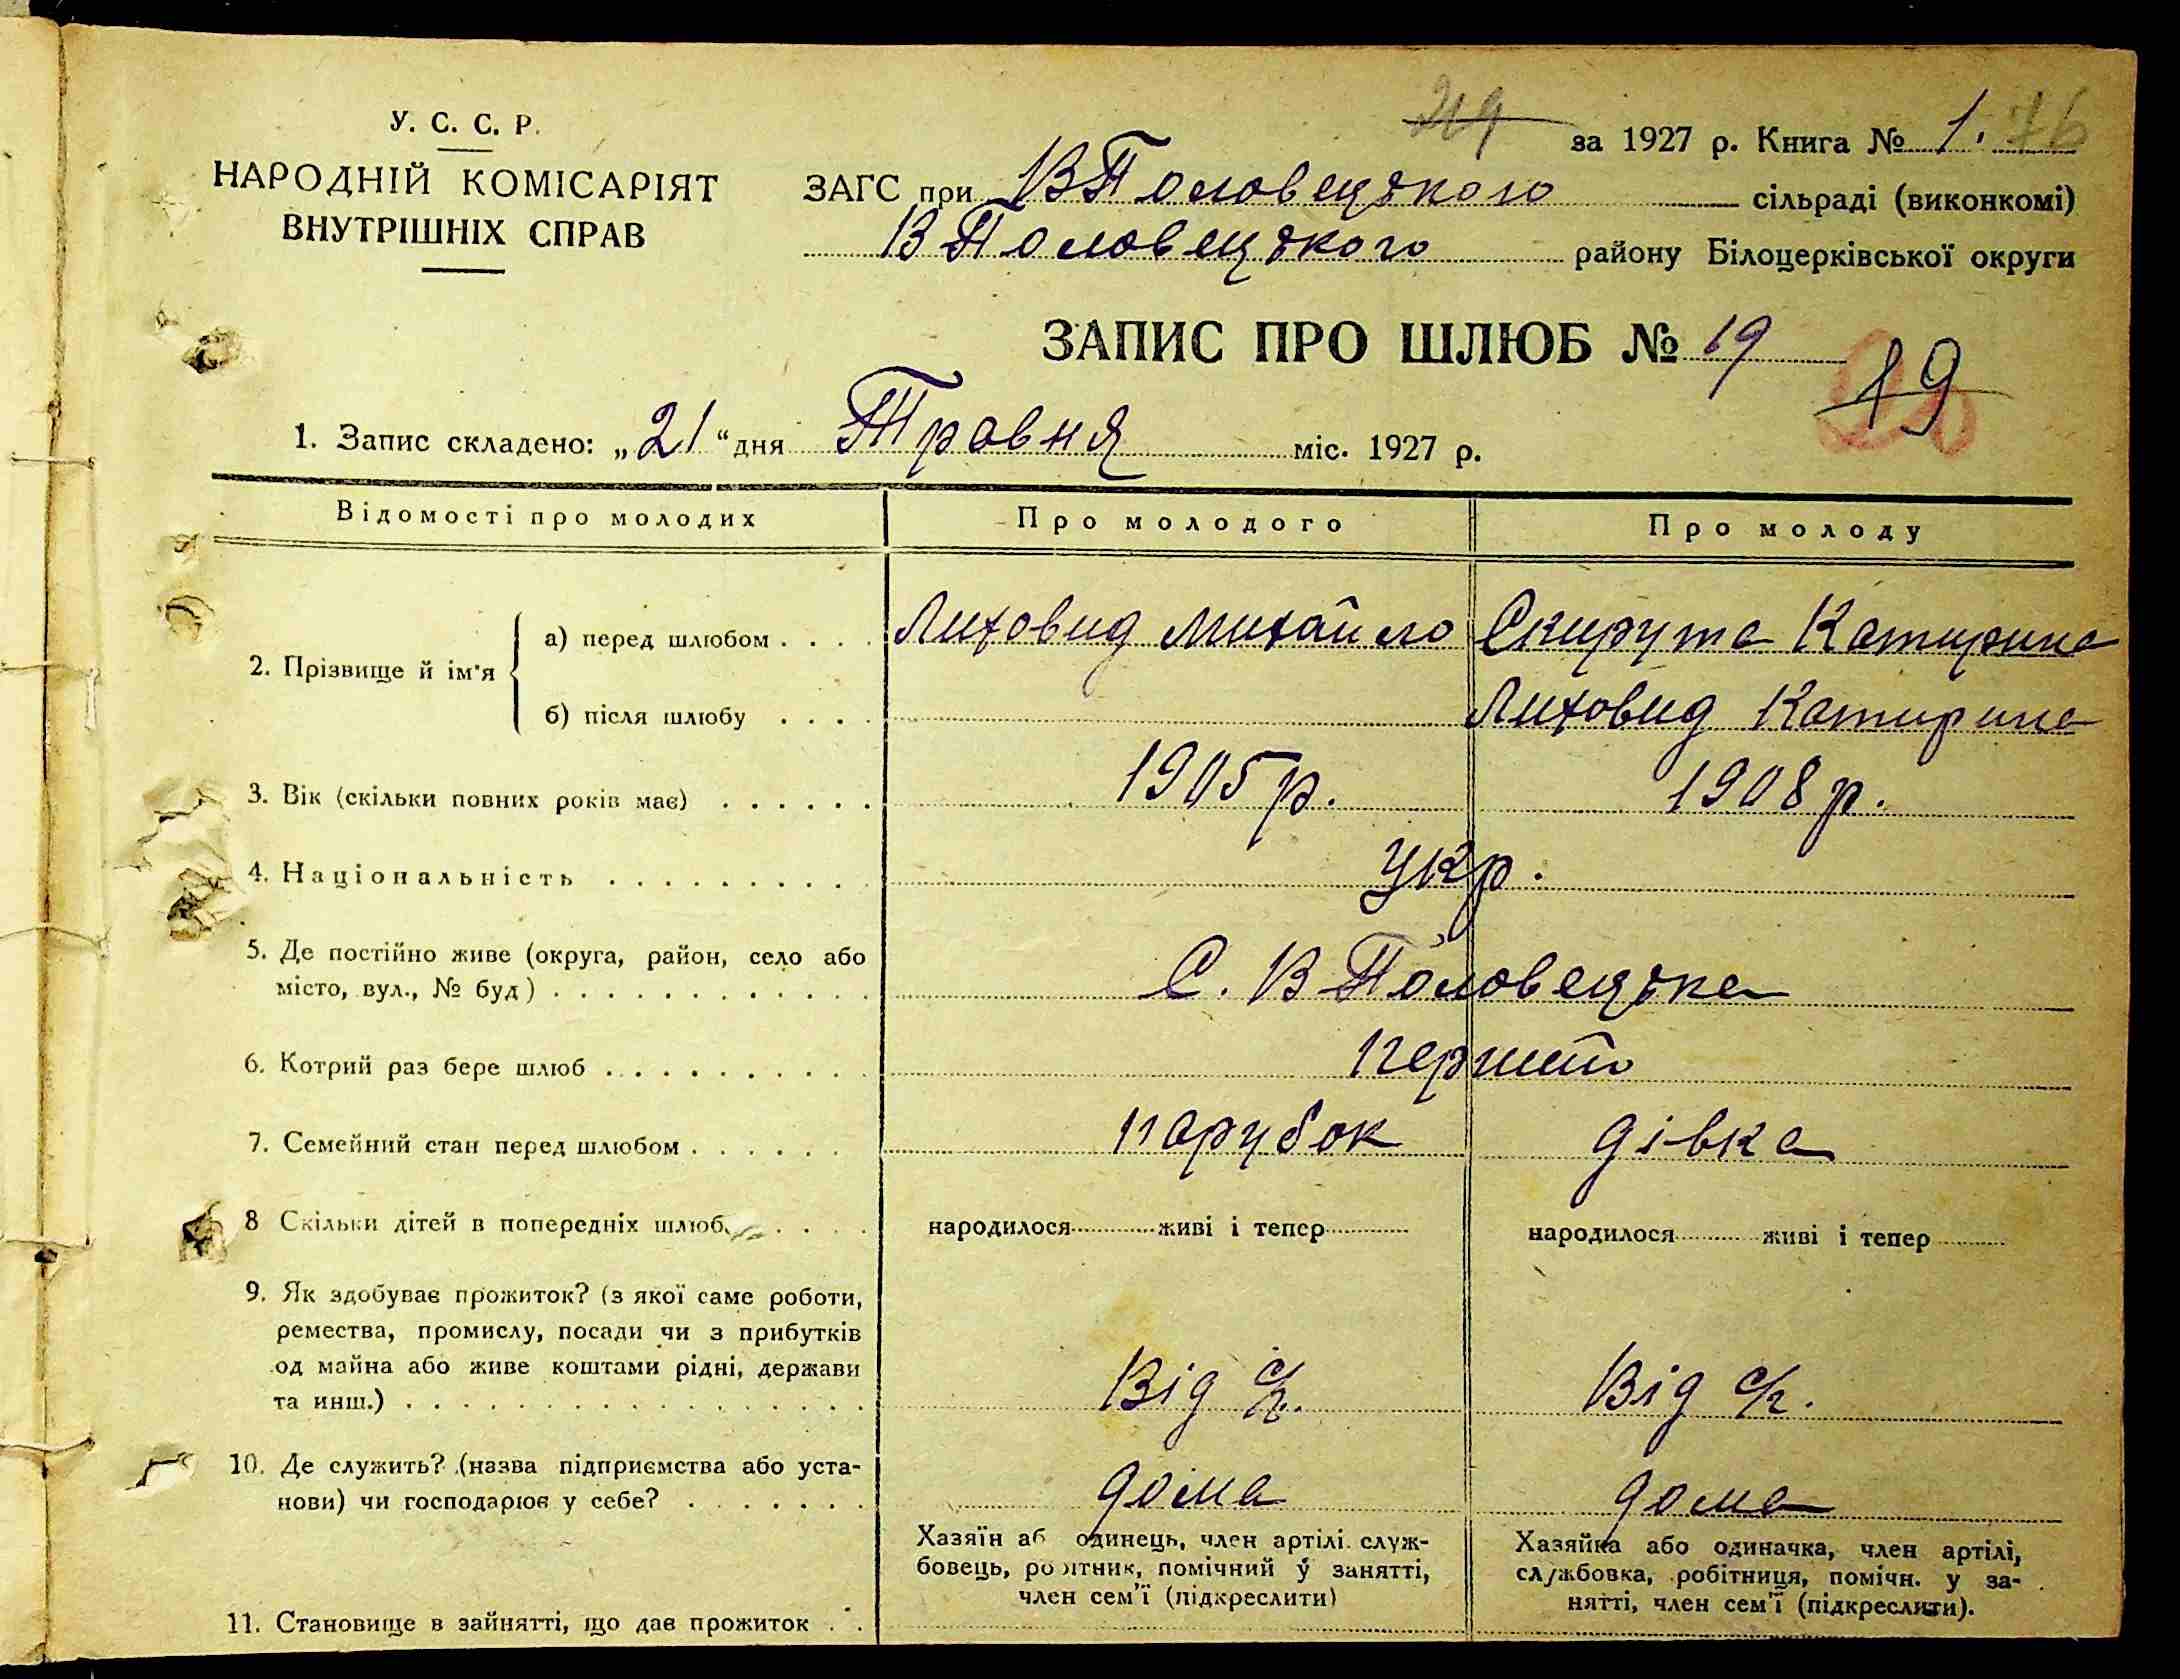 219 за 1927 р. Книга № 1. 76
У. С. С. Р.
НАРОДНІЙ КОМІСАРІЯТ
ВНУТРІШНІХ СПРАВ
ЗАГС при ВПоловецького сільраді (виконкомі)
ВПоловецького району Білоцерківської округи
ЗАПИС ПРО ШЛЮБ № 19
19
1. Запис складено: „21“ дня Травня міс. 1927 р.
Відомості про молодих Про молодого Про молоду
2. Прізвище й ім'я
а) перед шлюбом . . . . Лиховид Михайло Скирута Катирина
б) після шлюбу . . . . Лиховид Катирина
3. Вік (скільки повних років має) . . . . . . 1905 р. 1908 р.
4. Національність . . . . . . . . . . укр.
5. Де постійно живе (округа, район, село або
місто, вул., № буд) . . . . . . . . . . . . С. ВПоловецьке
6. Котрий раз бере шлюб . . . . . . . . . . перший
7. Семейний стан перед шлюбом . . . . . . парубок дівка
8 Скільки дітей в попередніх шлюб . . . . народилося живі і тепер народилося живі і тепер
9. Як здобуває прожиток? (з якої саме роботи,
ремества, промислу, посади чи з прибутків
од майна або живе коштами рідні, держави
та инш.) . . . . . . . . . . . . . . . . . Від с/г. Від с/г.
10. Де служить? (назва підприємства або уста-
нови) чи господарює у себе? . . . . . . . дома дома
Хазяїн аб одинець, член артілі служ-
бовець, ро ітник, помічний у занятті,
член сем'ї (підкреслити)
Хазяйка або одиначка, член артілі,
службовка, робітниця, помічн. у за-
нятті, член сем'ї (підкреслити).
11. Становище в зайнятті, що дає прожиток . .